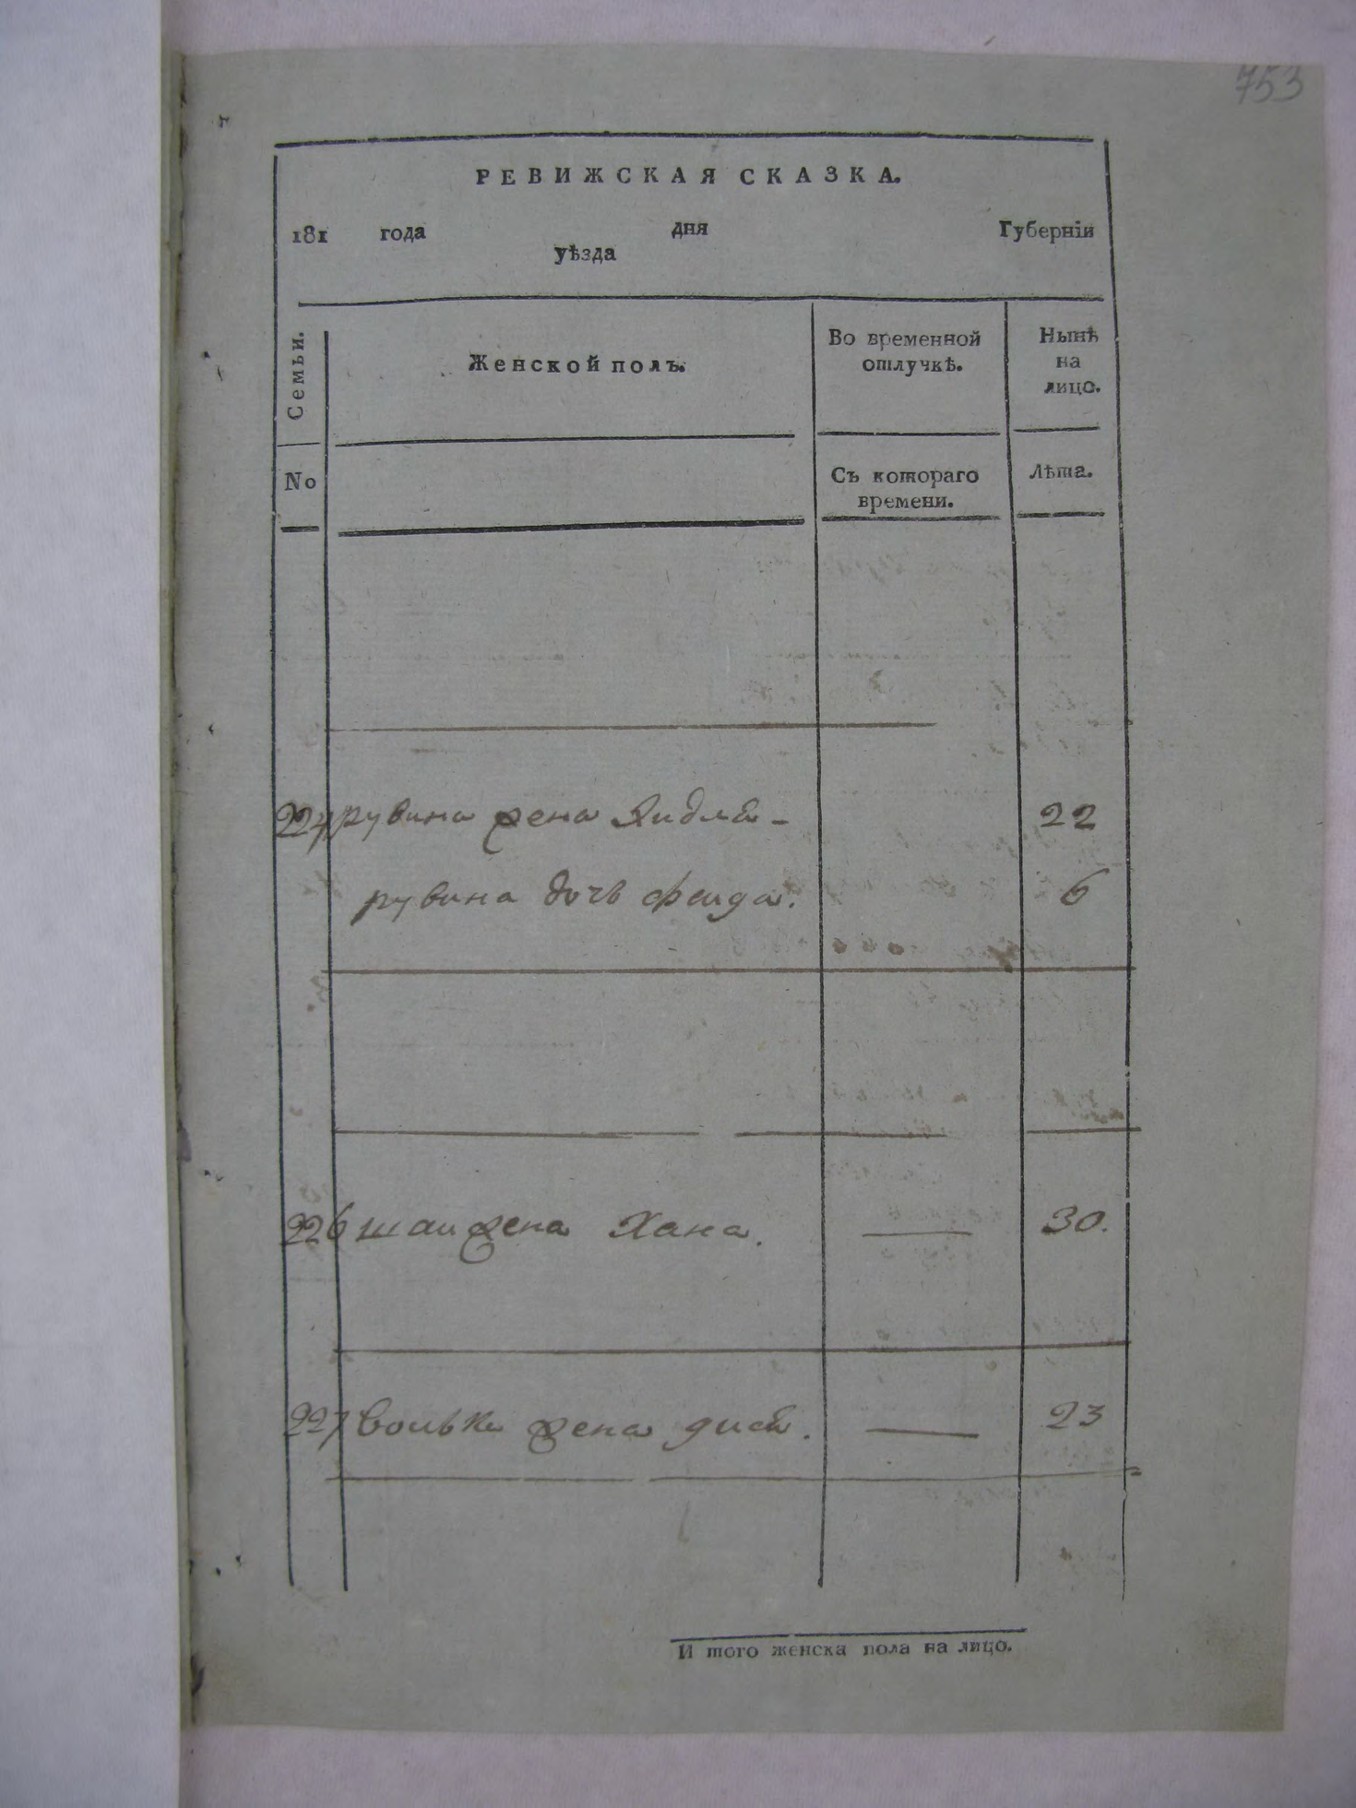 753
РЕВИЖСКАЯ СКАЗКА.
181 года дня Губерніи
уѣзда
Семьи. Женской полъ. Во временной отлучкѣ. Нынѣ на лицо.
No Съ котораго времени. Лѣта.
224 рувина жена 22
рувина дочь фейда. 6
226 шаи жена Хана. — 30.
227 вольки жена — 23
И того женска пола на лицо.